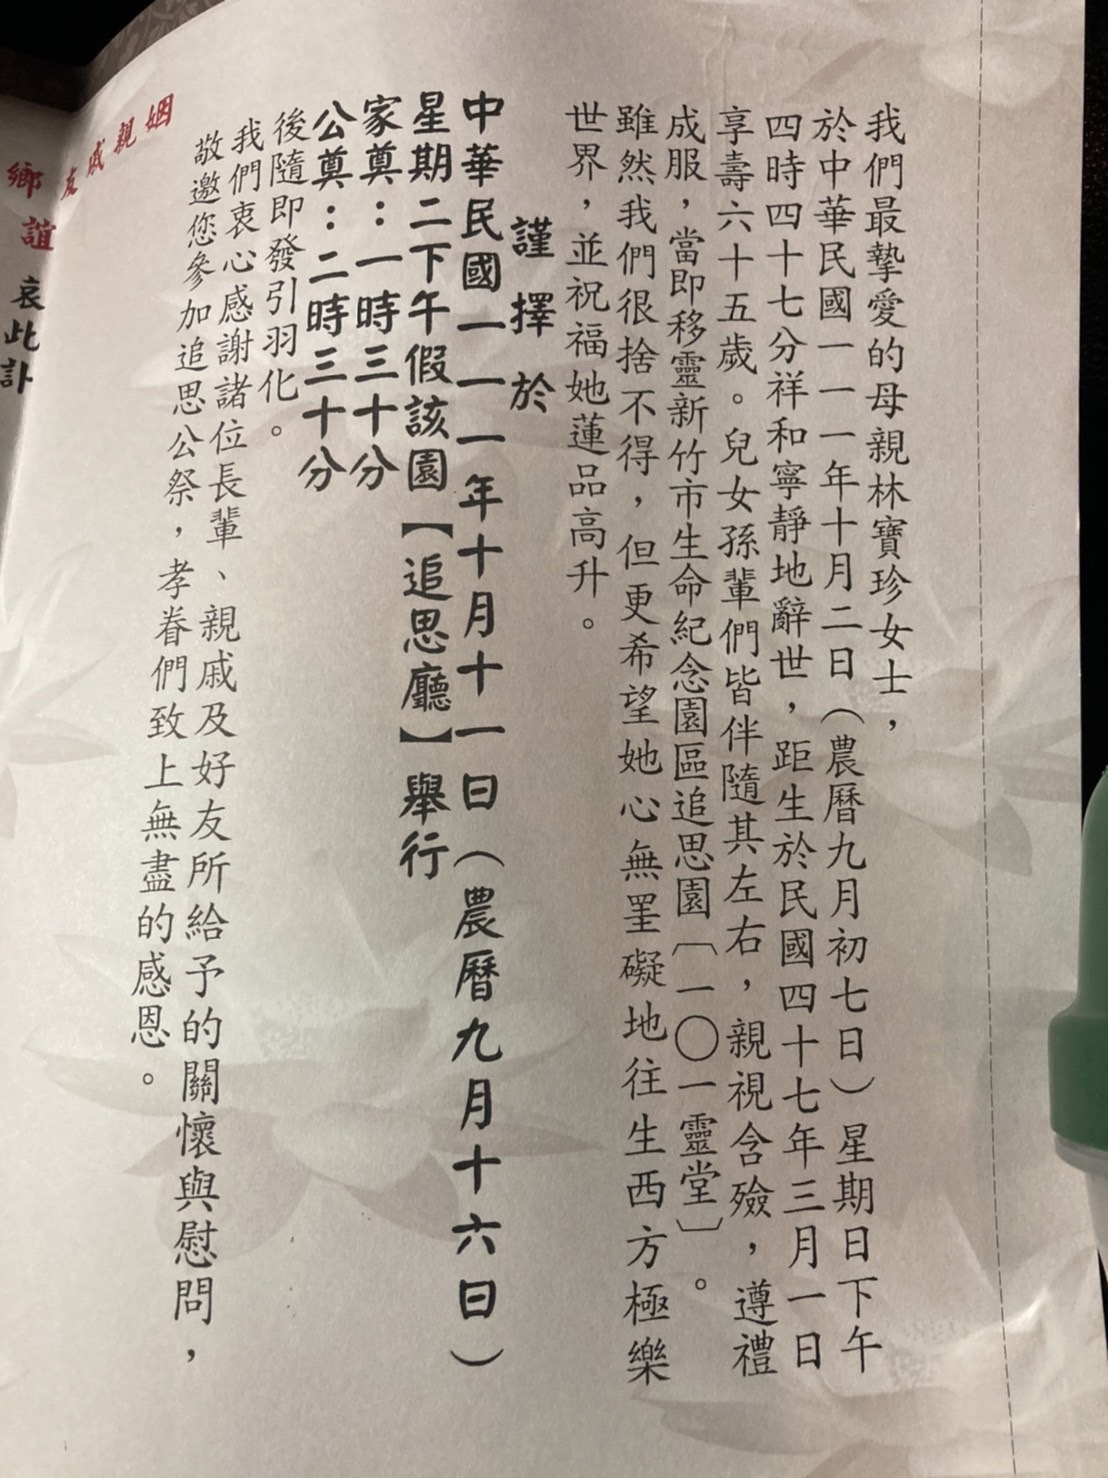 我們最摯愛的母親林寶珍女士，
於中華民國一一一年十月二日（農曆九月初七日）星期日下午
四時四十七分祥和寧靜地辭世，距生於民國四十七年三月一日
享壽六十五歲。兒女孫輩們皆伴隨其左右，親視含殮，遵禮
成服，當即移靈新竹市生命紀念園區追思園〔一〇一靈堂〕。
雖然我們很捨不得，但更希望她心無罣礙地往生西方極樂
世界，並祝福她蓮品高升。
謹擇於
中華民國一一一年十月十一日（農曆九月十六日）
星期二下午假該園【追思廳】舉行
家奠：一時三十分
公奠：二時三十分
後隨即發引羽化。
我們衷心感謝諸位長輩、親戚及好友所給予的關懷與慰問，
敬邀您參加追思公祭，孝眷們致上無盡的感恩。
姻親戚友
鄉誼
哀此訃